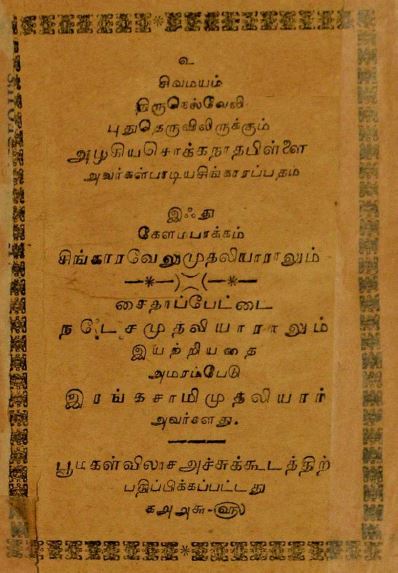 உ
சிவமயம்
திருநெல்வேலி
புதுதெருவிலிருக்கும்
அழகியசொக்கநாதபிள்ளை
அவர்கள்பாடியசிங்காரப்பதம்
இஃது
கேளம்பாக்கம்
சிங்காரவேலுமுதலியாராலும்
சைதாப்பேட்டை
நடேசமுதலியாராலும்
இயற்றியதை
அமரம்பேடு
இரங்கசாமிமுதலியார்
அவர்களது.
பூமகள்விலாசஅச்சுக்கூடத்திற்
பதிப்பிக்கப்பட்டது
௧௮௮௬-௵